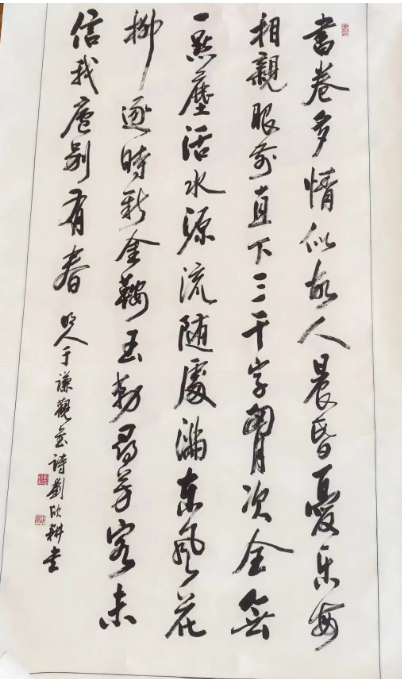 書卷多情似故人晨昏憂樂每
相親眼前直下三千字胷次全無
一點塵活水源流随處滿東風花
柳逐時新金鞍玉勒尋芳客未
信我廬別有春
明人于謙觀書詩劉欣耕書